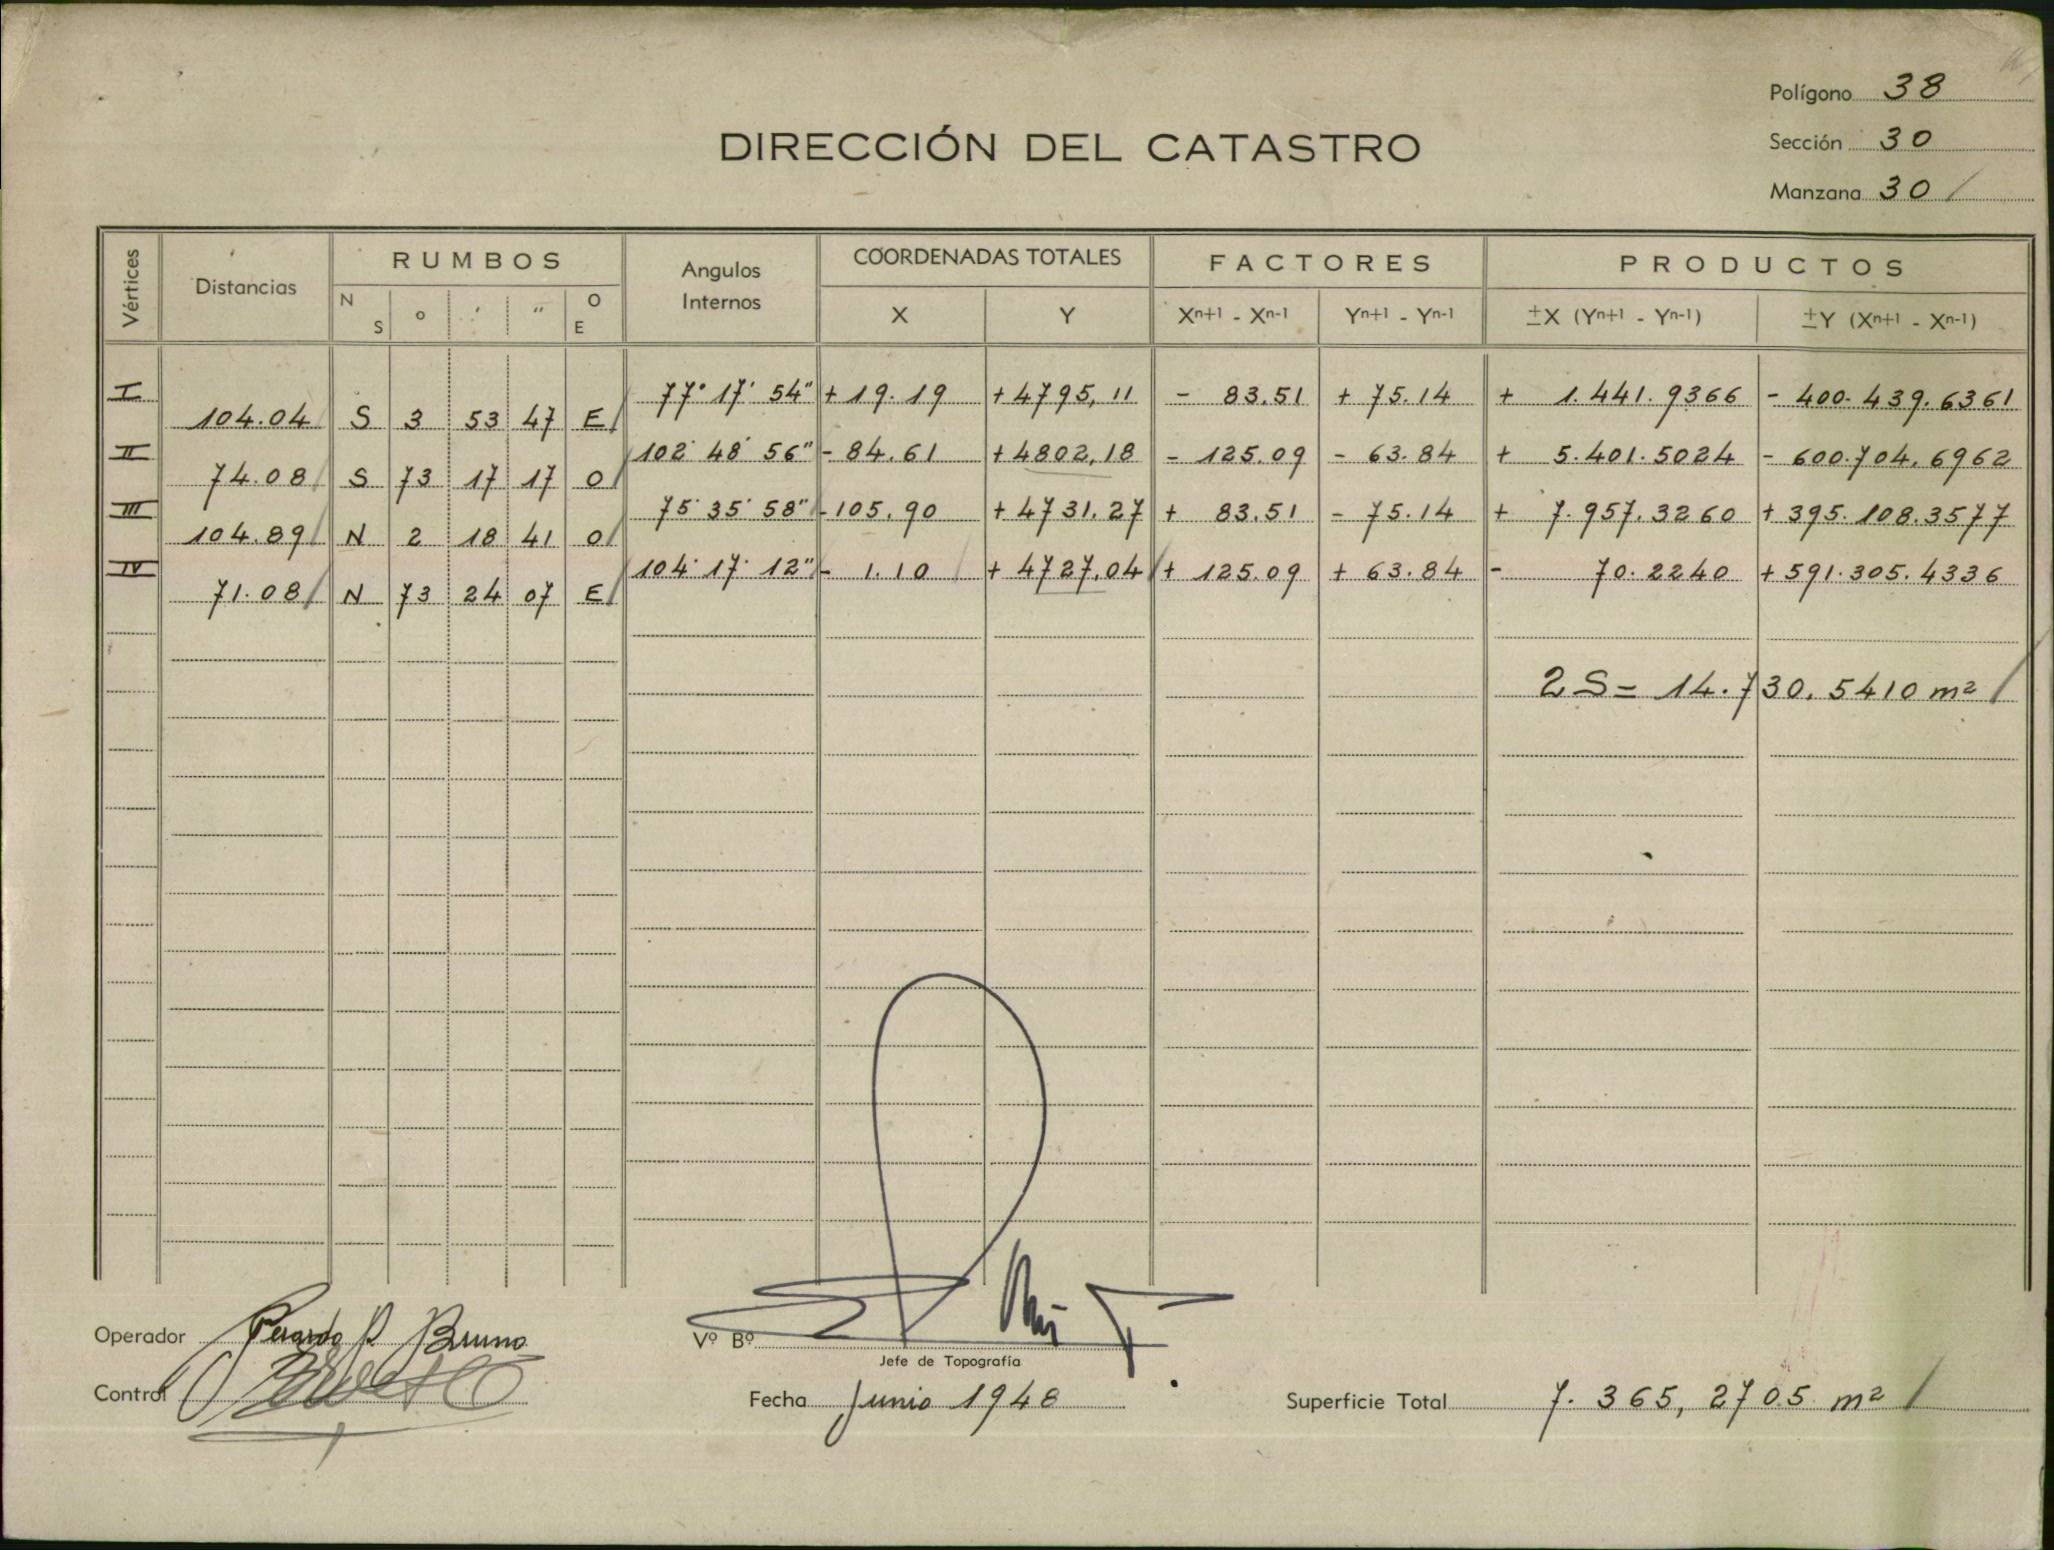 Polígono 38
DIRECCIÓN DEL CATASTRO
Sección 30
Manzana 30
Vértices Distancias RUMBOS Angulos Internos COORDENADAS TOTALES FACTORES PRODUCTOS
N S o ' " O E X Y Xn+1 - Xn-1 Yn+1 - Yn-1 ±X (Yn+1 - Yn-1) ±Y (Xn+1 - Xn-1)
I 77° 17' 54" + 19.19 + 4795,11 - 83.51 + 75.14 + 1.441.9366 - 400.439.6361
104.04 S 3 53 47 E
II 102° 48' 56" - 84.61 + 4802,18 - 125.09 - 63.84 + 5.401.5024 - 600.704.6962
74.08 S 73 17 17 O
III 75° 35' 58" - 105.90 + 4731.27 + 83.51 - 75.14 + 7.957.3260 + 395.108.3577
104.89 N 2 18 41 O
IV 104° 17' 12" - 1.10 + 4727,04 + 125.09 + 63.84 - 70.2240 + 591.305.4336
71.08 N 73 24 07 E
2S = 14.730.5410 m²
Operador Gerardo P. Bruno
Vº Bº
Jefe de Topografía
Control
Fecha Junio 1948
Superficie Total 7.365,2705 m²